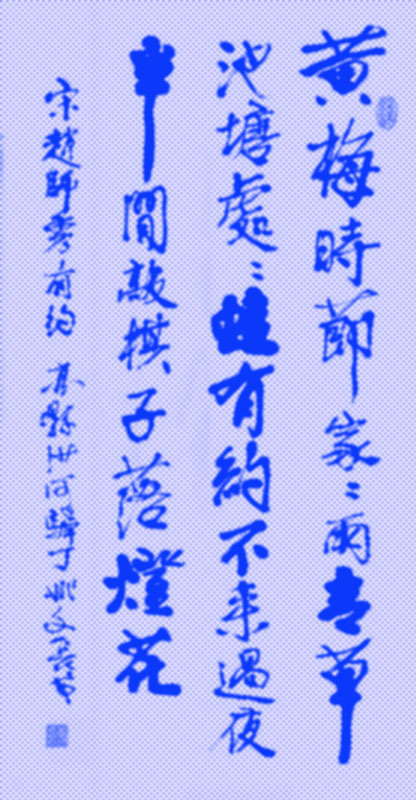 黃梅時節家〻雨青草
池塘處〻蛙有約不來過夜
半閒敲棋子落燈花
宋趙師秀有約